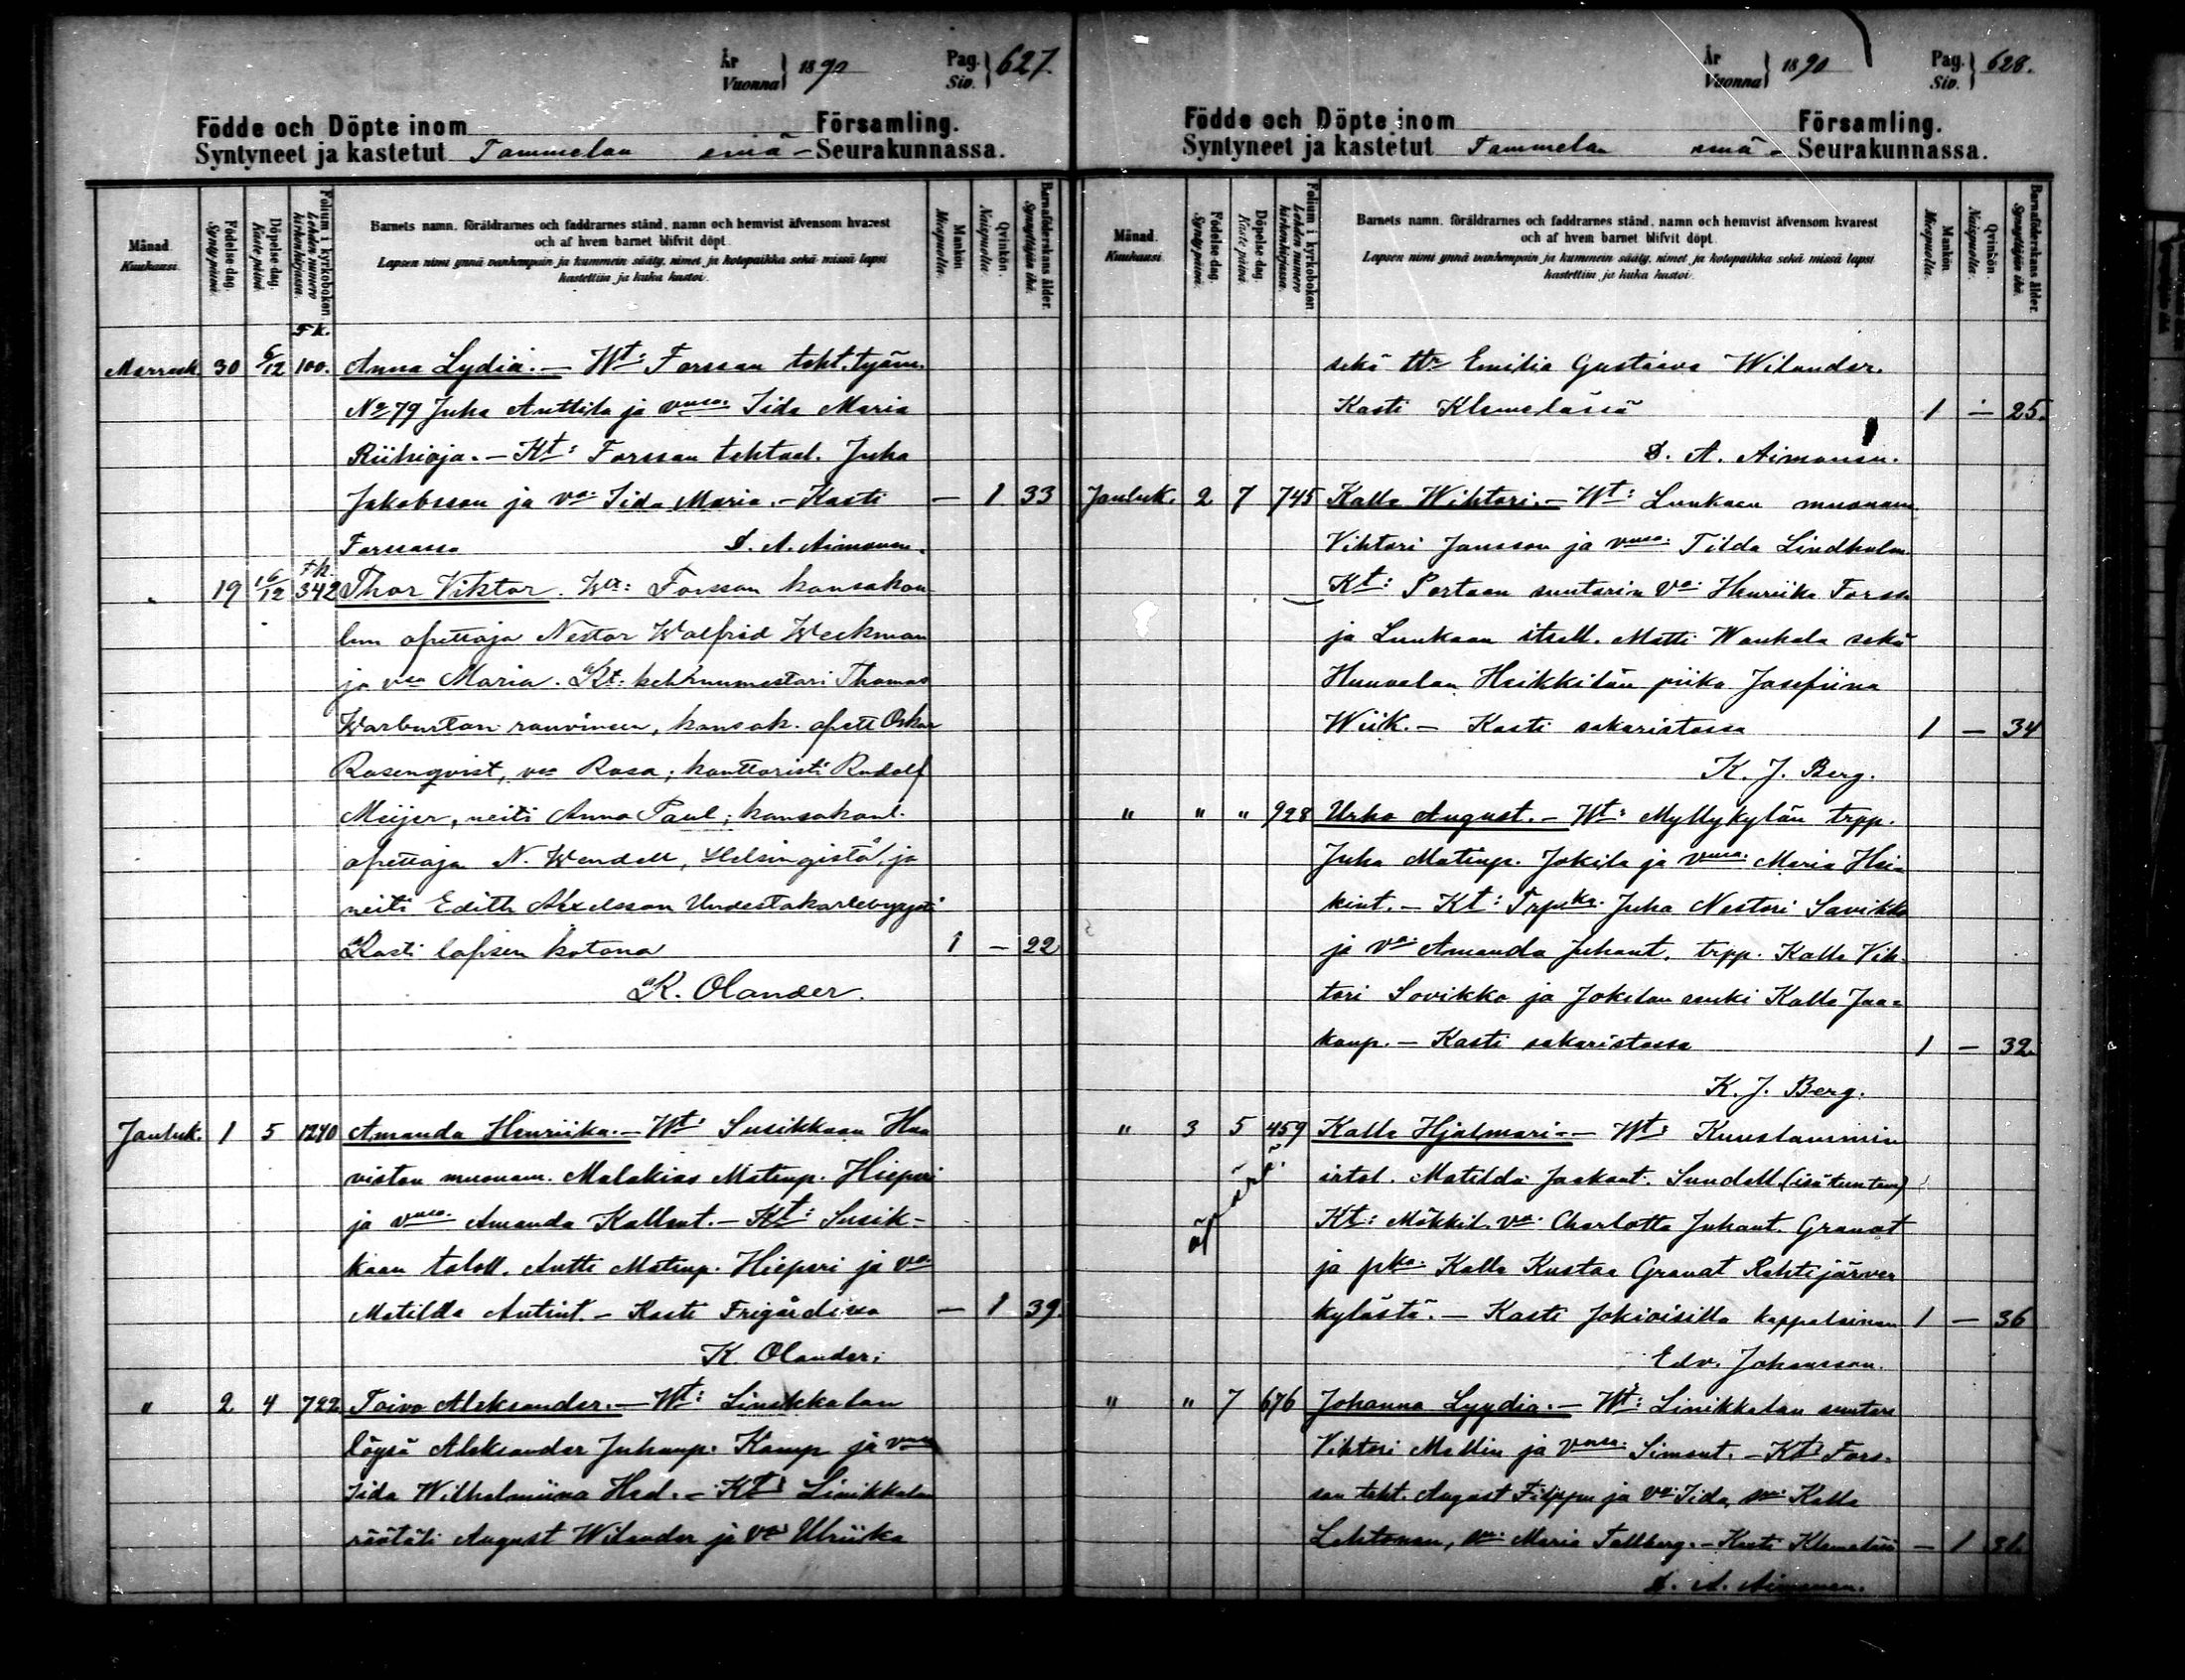 År
Vuonna } 1890 Pag.
Siv. } 627.
Födde och Döpte inom Församling.
Syntyneet ja kastetut Tammelan emä- Seurakunnassa.
Månad. Kuukausi.
Födelse dag. Synty päivä.
Döpelse dag. Kaste päivä.
Folium i kyrkobokon Lehden numero kirkonkirjassa.
Barnets namn, föräldrarnes och faddrarnes stånd, namn och hemvist äfvensom hvarest
och af hvem barnet blifvit döpt.
Lapsen nimi ynnä vanhempain ja kummein sääty, nimet ja kotopaikka sekä missä lapsi
kastettiin ja kuka kastoi.
Mankön. Miespuolta.
Qvinkön. Naispuolta.
Barnaföderskans ålder. Synnyttäjän ikä.
F.k.
Marrask. 30 6/12 100. Anna Lydia. — Wt: Forssan teht. työm.
No 79 Juha Anttila ja vmsa: Iida Maria
Riihioja. — Kt: Forssan tehtaal. Juha
Jakobsson ja va: Iida Maria. — Kasti — 1 33
Forssassa D. A. Aimonen.
F.k.
" 19 16/12 342 Thor Viktor. Wt: Forssan kansakou
lun opettaja Nestor Walfrid Weckman
ja vsa Maria. Kt: kehruumestari Thomas
Warburton rouvineen, kansak. opett Oskar
Rosenqvist, va Rosa; konttoristi Rudolf
Meijer, neiti Anna Paul; kansakoul.
opettaja N. Wendell, Helsingistä, ja
neiti Edith Alexelsson Uudestakarlebyystä
Kasti lapsen kotona 1 — 22
K. Olander.
Jouluk. 1 5 1240 Amanda Henriika. — Wt: Susikkaan Haa
viston muonam. Malakias Matinp. Hieperi
ja vmsa: Amanda Kallent. — Kt: Susik-
kaan taloll. Antti Matinp. Hieperi ja va:
Matilda Antint. — Kasti Frigårdissa — 1 39.
K. Olander.
" 2 4 722 Toivo Aleksander. — Wt: Linikkalan
löysä Aleksander Juhanp. Kamp ja vmsa
Iida Wilhelmiina Hed. — Kt: Linikkalan
räätäli August Wilander ja va Ulriika
År
Vuonna } 1890 Pag.
Siv. } 628.
Födde och Döpte inom Församling.
Syntyneet ja kastetut Tammelan emä- Seurakunnassa.
Månad. Kuukausi.
Födelse dag. Synty päivä.
Döpelse dag. Kaste päivä.
Folium i kyrkobokon Lehden numero kirkonkirjassa.
Barnets namn, föräldrarnes och faddrarnes stånd, namn och hemvist äfvensom hvarest
och af hvem barnet blifvit döpt.
Lapsen nimi ynnä vanhempain ja kummein sääty, nimet ja kotopaikka sekä missä lapsi
kastettiin ja kuka kastoi.
Mankön. Miespuolta.
Qvinkön. Naispuolta.
Barnaföderskans ålder. Synnyttäjän ikä.
sekä ttr Emilia Gustaava Wilander.
Kasti Klemelässä 1 — 25.
D. A. Aimonen.
Jouluk. 2 7 745 Kalle Wihtori. — Wt: Lunkaan muonam.
Vihtori Jansson ja vmsa: Tilda Lindholm.
Kt: Portaan suutarin va: Henriika Forss
ja Lunkaan itsell. Matti Wanhala sekä
Hunnalan Heikkilän piika Josefiina
Wiik. — Kasti sakaristossa 1 — 34
K. J. Berg.
" " " 928 Urho August. — Wt: Myllykylän trpp.
Juha Matinp. Jokila ja vmsa: Maria Hei-
kint. — Kt: Trpoika Juha Nestori Savikko
ja va: Amanda Juhant. trpp. Kalle Vih-
tori Savikko ja Jokilan renki Kalle Jaa-
konp. — Kasti sakaristossa 1 — 32.
K. J. Berg.
" 3 5 459 Kalle Hjalmari. — Wt: Kuuslammin
äpärä.
irtol. Matilda Jaakont. Sundell (isä tuntem)
Kt: Mäkkil. va: Charlotta Juhant. Granat
ja pka: Kalle Kustaa Granat Rehtijärven
kylästä. — Kasti Jokioisilla kappalainen 1 — 36
Edv. Johansson.
" " 7 676 Johanna Lyydia. — Wt: Linikkalan suutari
Vihtori Mellin ja vmsa: Simont. — Kt: Fors-
san teht. August Filppu ja va: Iida, Kalle
Lehtonen, Maria Tallberg. — Kasti Klemelässä — 1 31.
D. A. Aimonen.